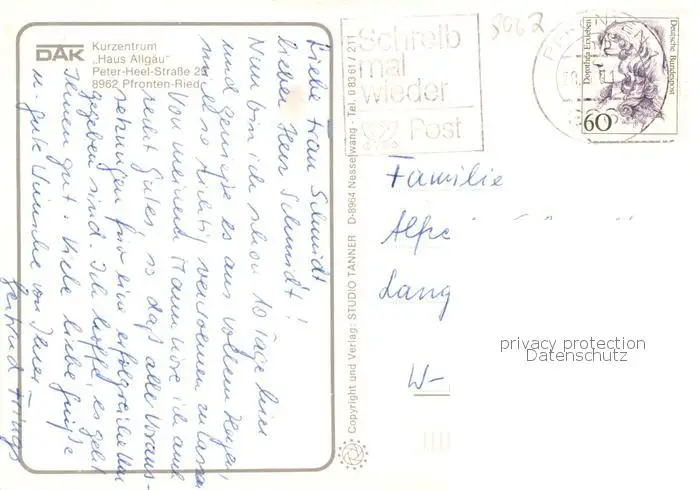 DAK Kurzentrum
„Haus Allgäu"
Peter-Heel-Straße 29
8962 Pfronten-Ried
Liebe Frau Schmidt
lieber Herr Schmidt!
Nun bin ich schon 10 Tage hier
und genieße es aus vollem Herzen,
mich so richtig verwöhnen zu lassen
Von meinem Mann höre ich auch
recht Gutes, so daß alle Voraus-
setzungen für eine erfolgreiche Kur
gegeben sind. Ich hoffe, es geht
Ihnen gut. Viele liebe Grüße
u. gute Wünsche von Ihrer
Gertrud
Copyright und Verlag: STUDIO TANNER D-8964 Nesselwang - Tel. 0 83 61 / 211
Schreib
mal
wieder
Post
Dorothea Erxleben
Deutsche Bundespost
60
Familie
Lang
W-
privacy protection
Datenschutz